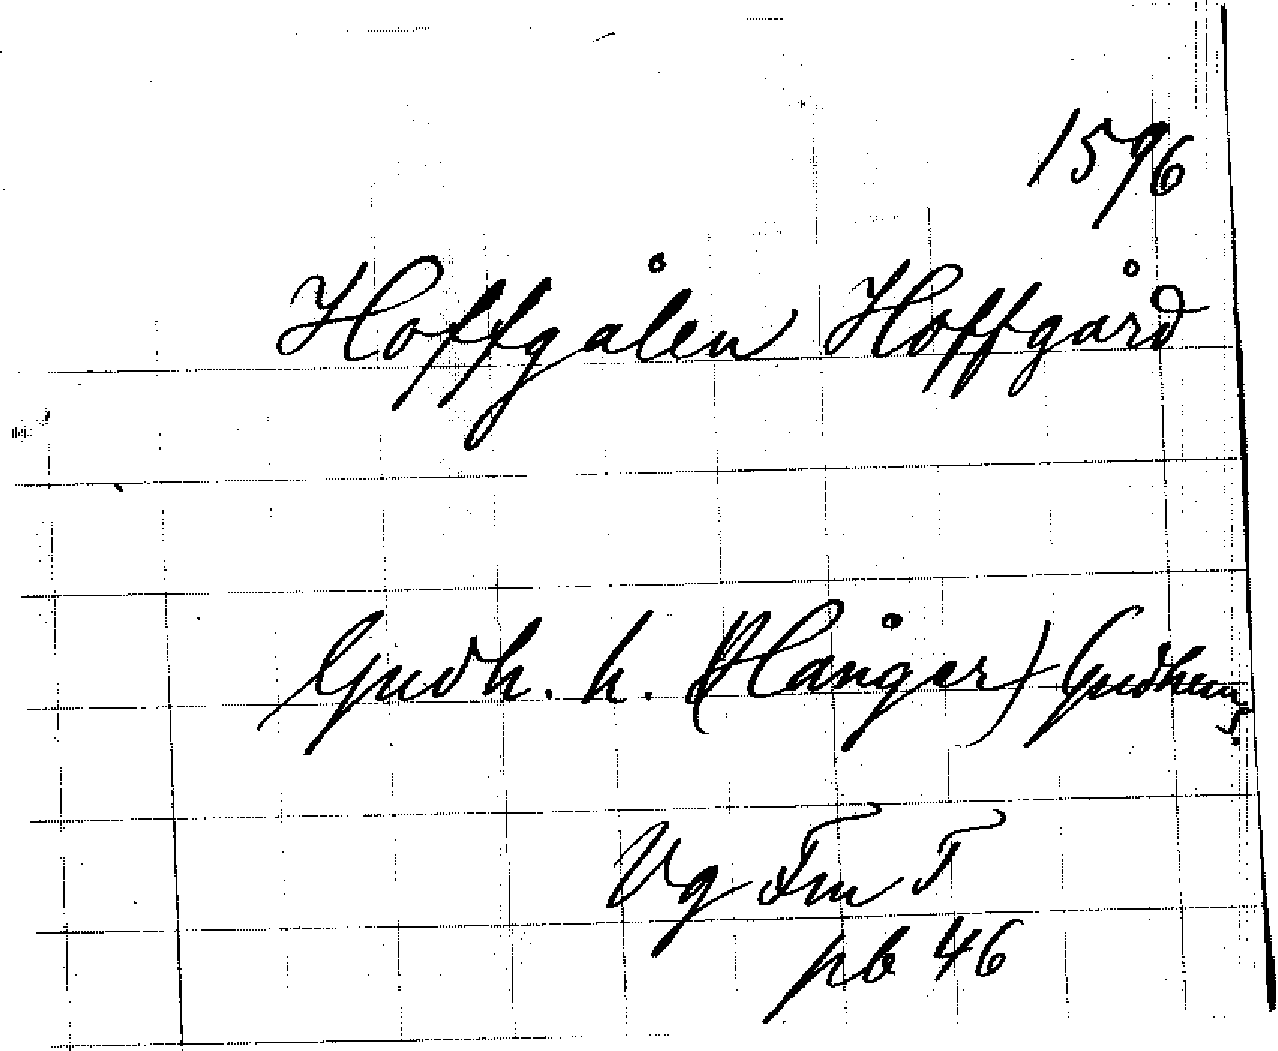 1596
Hoffgålen Hoffgård
Gudh. h. (Hånger) Gudhem
Vg Fm T
pb 46